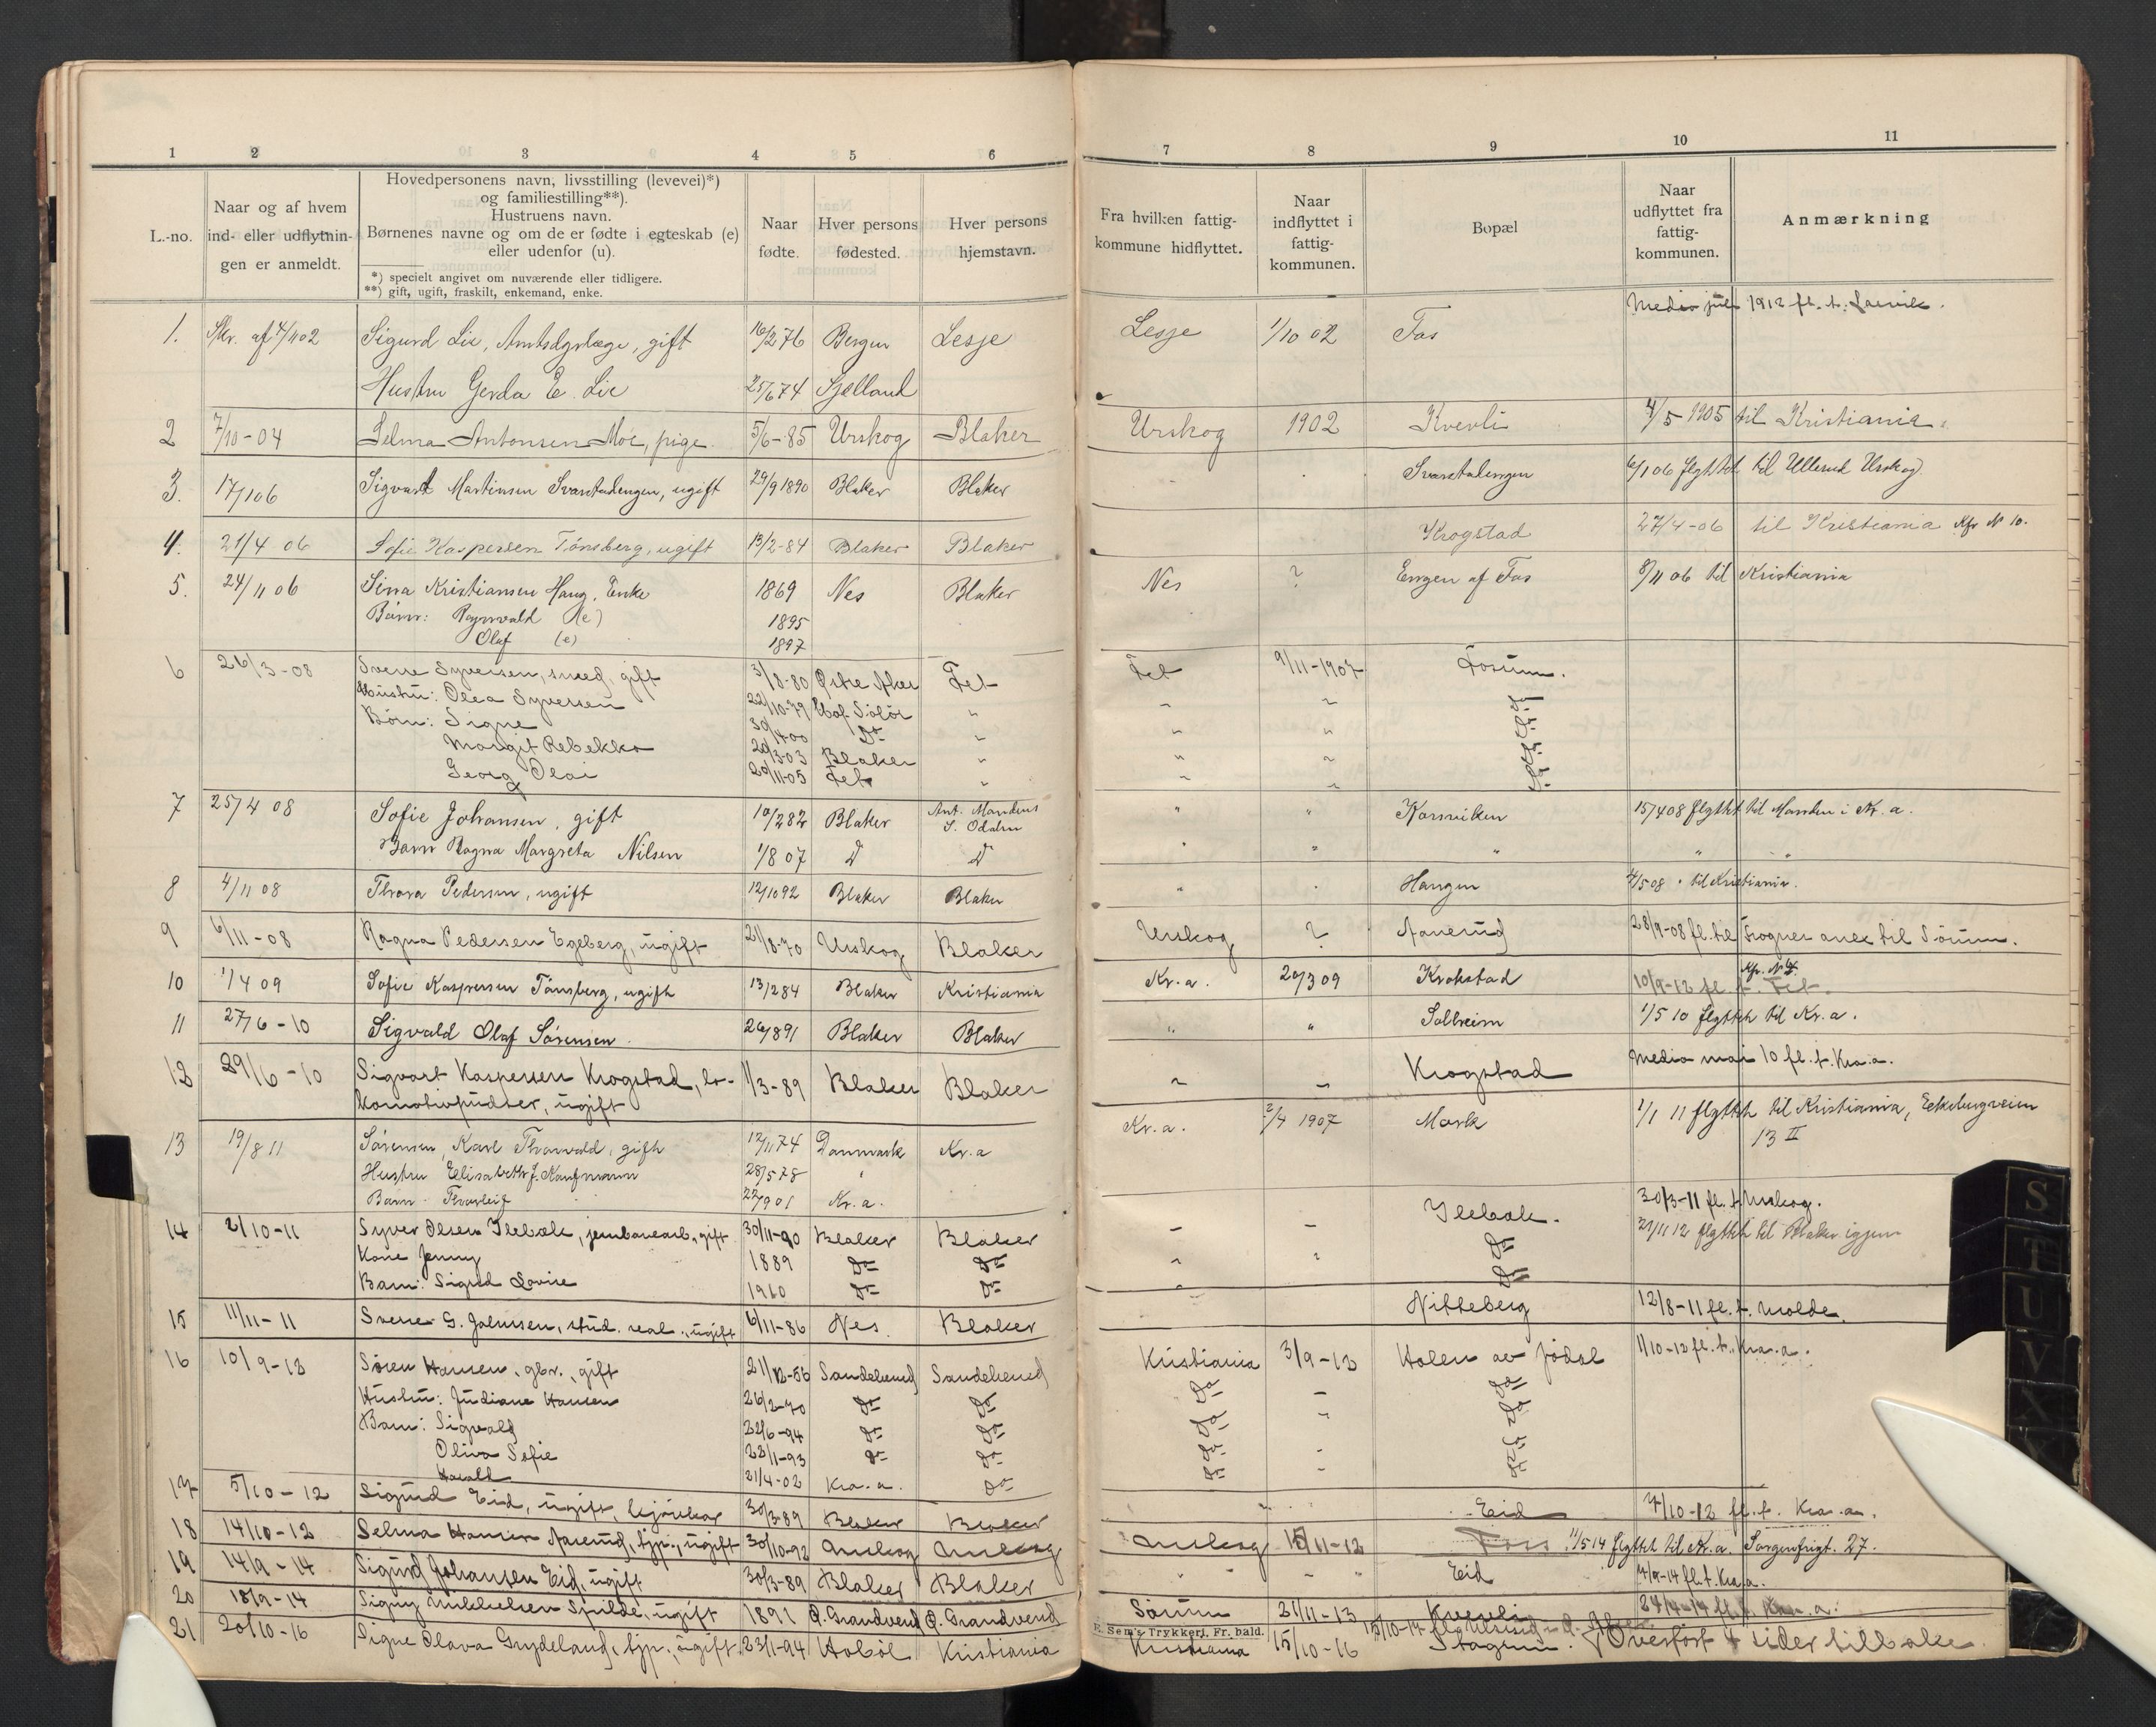 1 2 3 4 5 6 7 8 9 10 11
L.-no.
Naar og af hvem
ind- eller udflytnin-
gen er anmeldt.
Hovedpersonens navn, livsstilling (levevei)*)
og familiestilling**).
Hustruens navn.
Børnenes navne og om de er fødte i egteskab (e)
eller udenfor (u).
*) specielt angivet om nuværende eller tidligere.
**) gift, ugift, fraskilt, enkemand, enke.
Naar
fødte.
Hver persons
fødested.
Hver persons
hjemstavn.
Fra hvilken fattig-
kommune hidflyttet.
Naar
indflyttet i
fattig-
kommunen.
Bopæl
Naar
udflyttet fra
fattig-
kommunen.
Anmærkning
Medio juli 1912 fl. t. Larvik.
1. Skr. af 4/11 02 Sigurd Lie, Amtsdyrlæge, gift 16/2 76 Bergen Lesje Lesje 1/10 02 Fos
Hustru Gerda E. Lie 25/6 74 Sjælland
2 7/10-04 Selma Antonsen Moe, pige 5/6-85 Urskog Blaker Urskog 1902 Kvevli 4/5-1905 til Kristiania.
3. 17/1 06 Sigvart Martinsen Svarstadengen, ugift 29/9 1890 Blaker Blaker Svarstadengen 6/1 06 flyttet til Ullerud Urskog
4. 21/4 06 Sofie Kaspersen Tönsberg, ugift 13/2-84 Blaker Blaker Krogstad 27/4-06 til Kristiania Kfr N 10.
5. 24/11 06 Sina Kristiansen Haug, Enke 1869 Nes Blaker Nes ? Engen af Fos 8/11 06 til Kristiania
Börn: Ragnvald (e) 1895
Olaf (e) 1897
6 26/3-08 Sverre Syversen, smed, gift 3/8-80 Østre Aker Fet Fet 9/11-1907 Fossum.
Hustru: Olea Syversen 22/10-79 Hof Solör " " " Do
Börn: Signe 30/4-00 Do " " " Do
Margit Rebekka 20/3-03 Blaker " " " Do
Georg Olai 20/11-05 Fet " " " Do
7 25/4 08 Sofie Johansen, gift 10/2 82 Blaker Ant. Mandens S. Odalen " " Korsviken 15/4 08 flyttet til Manden i Kr.a.
Barn Ragna Margreta Nilsen 1/8 07 D D " " " " "
8 4/11 08 Thora Pedersen, ugift 12/10 92 Blaker Blaker " Haugen 4/5 08 " til Kristiania.
9 6/11-08 Ragna Pedersen Egeberg, ugift 21/8-70 Urskog Blaker Urskog ? Aanerud 28/9-08 fl. til Frogner anex til Sörum.
10 1/4 09 Sofie Kaspersen Tönsberg, ugift 13/2 84 Blaker Kristiania Kr.a. 20/3 09 Krokstad 10/9-12 fl. t. Fet. Kfr. N 4.
11 27/6-10 Sigvald Olaf Sörensen 26/8 91 Blaker Blaker " " Solheim 1/5 10 flyttet til Kr.a.
12 29/6-10 Sigvart Kaspersen Krogstad, lo- 1/3-89 Blaker Blaker " " Krogstad Medio mai 10 fl. t. Kra.a.
komotivpudser, ugift
13 19/8 11 Sörensen, Karl Thorvald, gift 12/11 74 Danmark Kr.a Kr.a. 2/4 1907 Mork 1/1 11 flyttet til Kristiania, Eckebergveien
13 II
Hustru Elisabeth J. Kaufmann 28/5 78 "
Barn Thorleif 22/9 01 Kr.a.
14 2/10-11 Syver Olsen Isebæk, jernbanearb., gift 30/11-90 Blaker Blaker " " Isebæk. 30/3-11 fl. t. Urskog.
Kone Jenny 1889 Do Do " " Do 21/11 12 flyttet til Blaker igjen
Barn: Sigrid Lovise 1910 Do Do " Do
15 11/11-11 Sverre G. Johnsen, stud. real., ugift 6/11-86 Nes Blaker Nitteberg 12/8-11 fl. t. Molde.
16 10/9-12 Sören Hansen, gbr., gift 21/12-56 Sandeherred Sandeherred Kristiania 3/9-12 Holen av Jödal 1/10-12 fl. t. Kra.a.
Hustru: Judiane Hansen 26/2-70 Do Do Do " Do
Barn: Sigvald 22/6-94 Do Do Do " Do
Oliva Sofie 23/11-93 Do Do Do " Do
Harald 21/4-02 Kra.a. Do Do " Do
17 5/10-12 Sigurd Eid, ugift, 30/3-89 Blaker Blaker " " Eid 7/10-12 fl. t. Kra.a.
18 14/10-12 Selma Hansen Aanerud, tjp., ugift 30/10-92 Urskog Urskog Urskog 15/11-12 Foss 11/5 14 flyttet til Kr.a. Sorgenfrigt. 27.
19 14/9-14 Sigurd Johansen Eid, ugift 30/3-89 Blaker Blaker " " Eid 7/9-14 fl. t. Kra.a.
20 18/9-14 Signy Mikkelsen Spilde, ugift 1891 Q. Strandvend Q. Strandvend Sörum 21/11-13 Kvevli 24/4-14 fl. t. Kra.a.
E. Sem's Trykkeri, Fr. hald.
21 20/10-16 Signe Olava Grydeland, tjp., ugift 23/1-94 Hobøl Kristiania Kristiania 15/10-16 Overfört 4 sider tilbake.
S
T
U
V
X